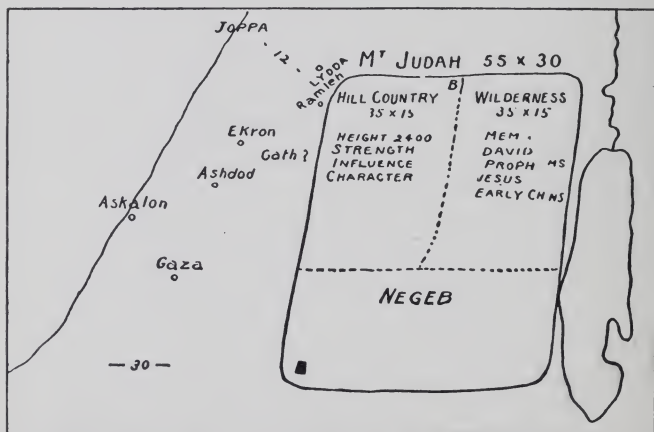 JOPPA
-12-
LYDDA
Ramleh
MT JUDAH 55 x 30
B
HILL COUNTRY
35 x 15
HEIGHT 2400
STRENGTH
INFLUENCE
CHARACTER
WILDERNESS
35 x 15
MEM.
DAVID
PROPH MS
JESUS
EARLY CH NS
Ekron
Gath?
Ashdod
Askalon
Gaza
NEGEB
—30—